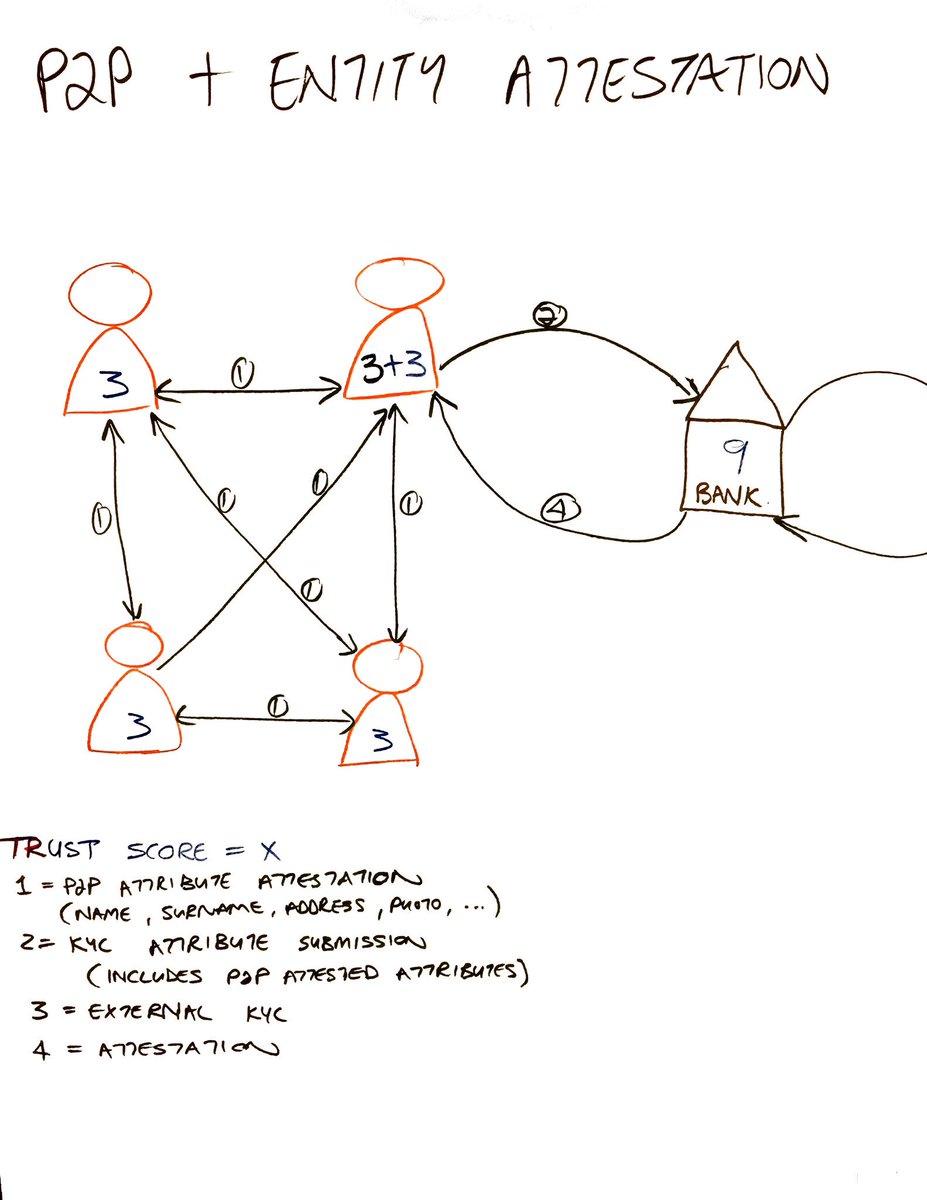 P2P + ENTITY ATTESTATION
3
3+3
①
②
9
BANK
①
①
①
①
④
①
3
①
3
TRUST SCORE = X
1 = P2P ATTRIBUTE ATTESTATION
(NAME, SURNAME, ADDRESS, PHOTO, ...)
2 = KYC ATTRIBUTE SUBMISSION
(INCLUDES P2P ATTESTED ATTRIBUTES)
3 = EXTERNAL KYC
4 = ATTESTATION